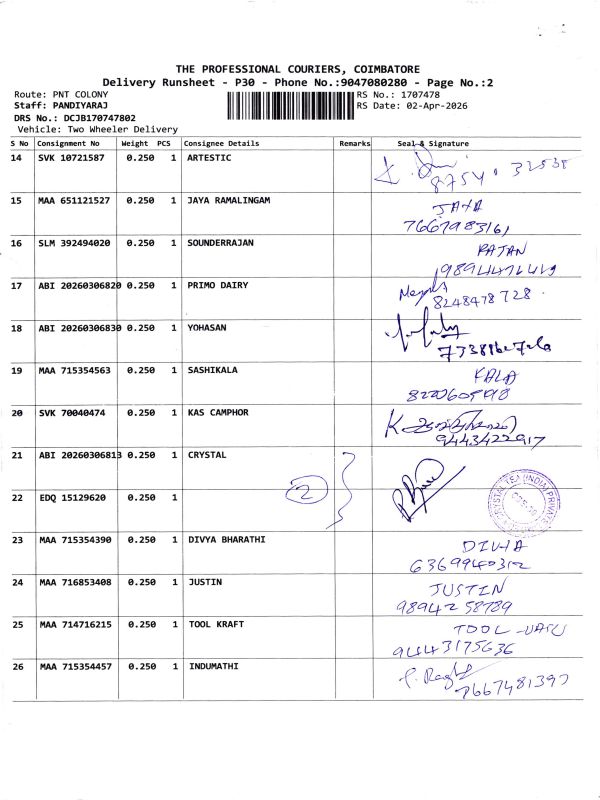 THE PROFESSIONAL COURIERS, COIMBATORE
Delivery Runsheet - P30 - Phone No.:9047080280 - Page No.:2
Route: PNT COLONY
RS No.: 1707478
Staff: PANDIYARAJ
RS Date: 02-Apr-2026
DRS No.: DCJB170747802
Vehicle: Two Wheeler Delivery
S No Consignment No Weight PCS Consignee Details Remarks Seal & Signature
14 SVK 10721587 0.250 1 ARTESTIC
15 MAA 651121527 0.250 1 JAYA RAMALINGAM JAYA
16 SLM 392494020 0.250 1 SOUNDERRAJAN RAJAN
17 ABI 20260306820 0.250 1 PRIMO DAIRY
8248478728
18 ABI 20260306830 0.250 1 YOHASAN
19 MAA 715354563 0.250 1 SASHIKALA KALA
20 SVK 70040474 0.250 1 KAS CAMPHOR
9443422917
21 ABI 20260306813 0.250 1 CRYSTAL
22 EDQ 15129620 0.250 1 2
23 MAA 715354390 0.250 1 DIVYA BHARATHI DIVYA
24 MAA 716853408 0.250 1 JUSTIN JUSTIN
9894258789
25 MAA 714716215 0.250 1 TOOL KRAFT TOOL
9443175636
26 MAA 715354457 0.250 1 INDUMATHI